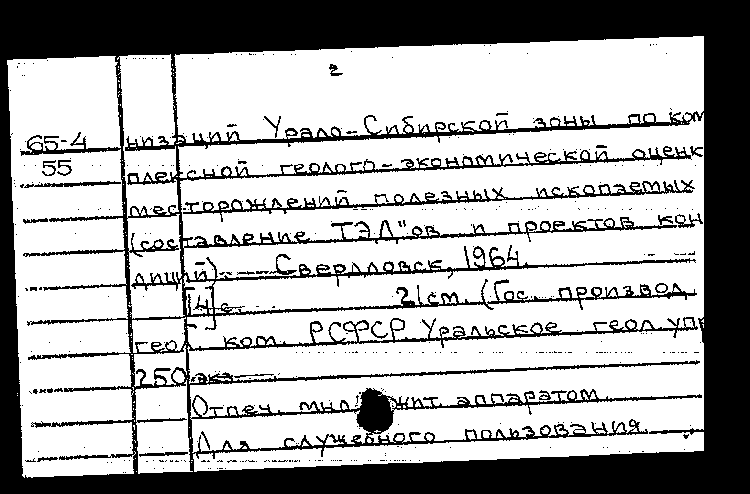 2
65-4 низаций Урало-Сибирской зоны по ком
55 плексной геолого-экономической оценк
месторождений полезных ископаемых
(составление ТЭД"ов и проектов кон
диций). — Свердловск, 1964.
[14] с. 21 см. (Гос. производ.
геол. ком. РСФСР Уральское геол. упр
250 экз.
Отпеч. множит. аппаратом.
Для служебного пользования.